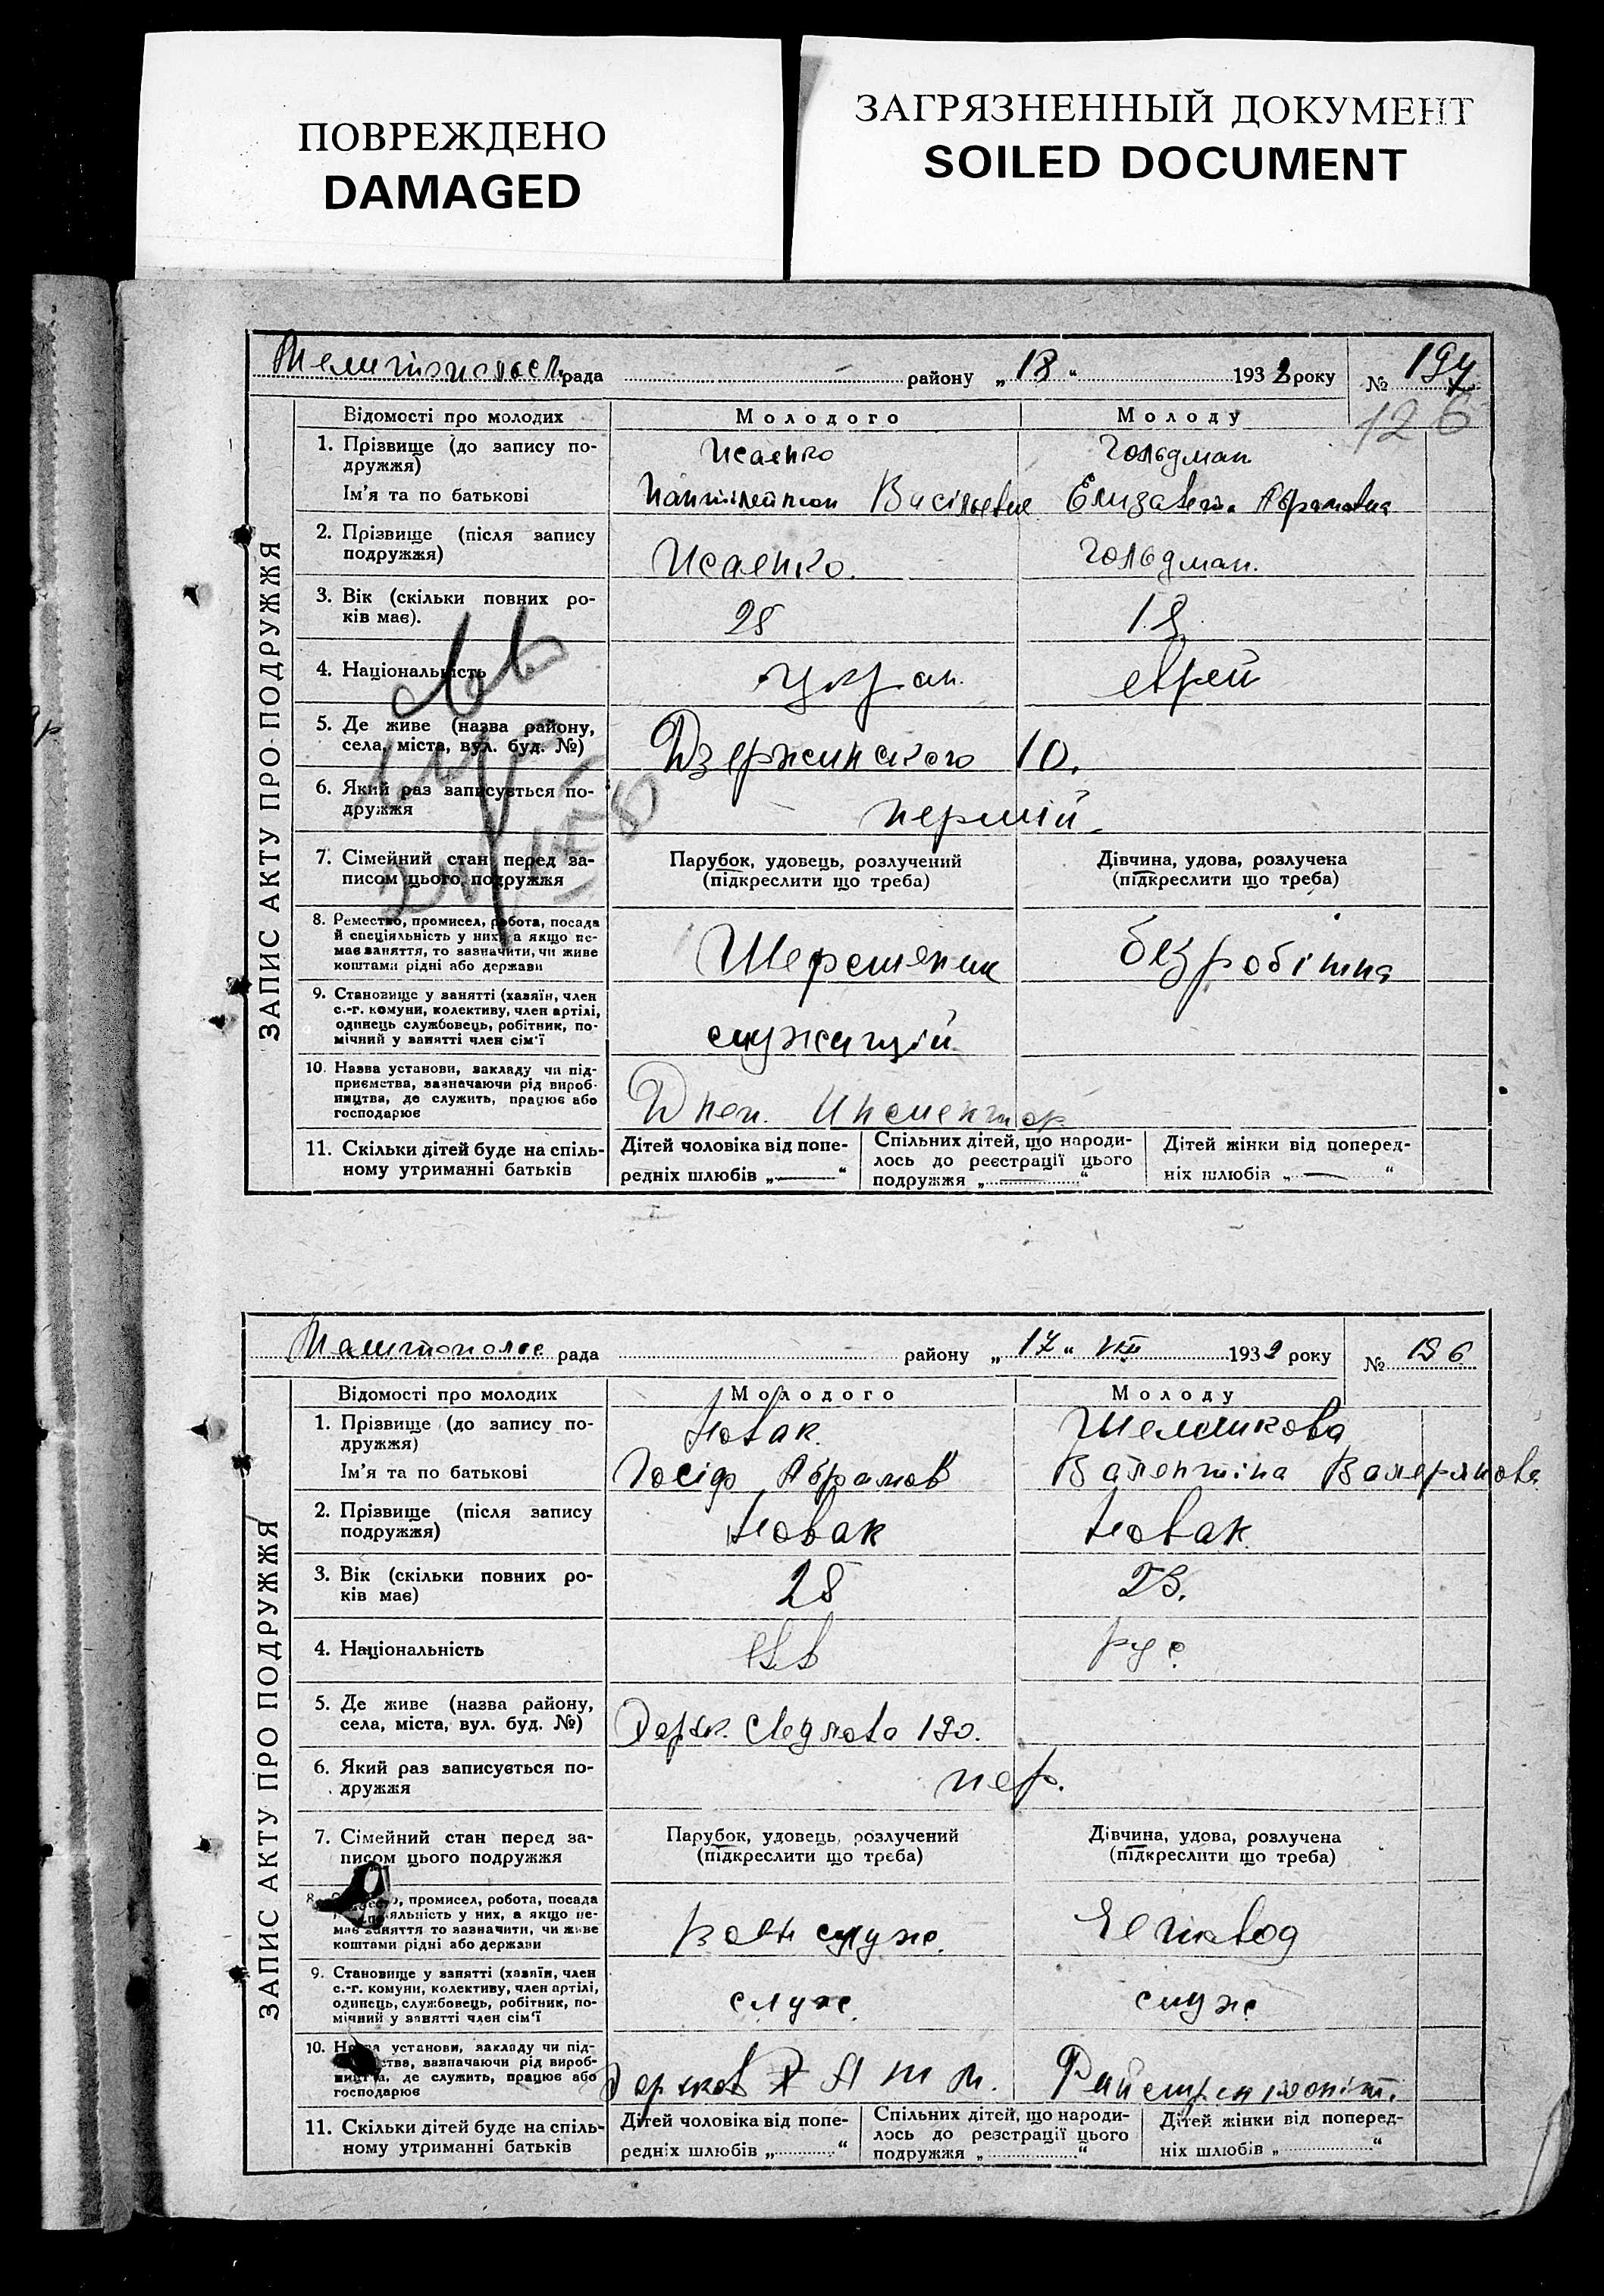 ПОВРЕЖДЕНО
DAMAGED
ЗАГРЯЗНЕННЫЙ ДОКУМЕНТ
SOILED DOCUMENT
рада району „18“ 1932 року № 197
126
ЗАПИС АКТУ ПРО ПОДРУЖЖЯ
Відомості про молодих Молодого Молоду
1. Прізвище (до запису по-
дружжя) Исаенко Гольдман
Ім'я та по батькові Елизавета Абрамовна
2. Прізвище (після запису
подружжя) Исаенко. Гольдман.
3. Вік (скільки повних ро-
ків має). 28 18
4. Національність украп. еврей
5. Де живе (назва району,
села, міста, вул. буд. №) Дзержинского 10.
6. Який раз записується по-
дружжя первий
7. Сімейний стан перед за-
писом цього подружжя
Парубок, удовець, розлучений
(підкреслити що треба)
Дівчина, удова, розлучена
(підкреслити що треба)
8. Ремество, промисел, робота, посада
й спеціяльність у них, а якщо не-
має заняття, то зазначити, чи живе
коштами рідні або держави
безробітна
9. Становище у занятті (хазяїн, член
с.-г. комуни, колективу, член артілі,
одинець службовець, робітник, по-
мічний у занятті член сім'ї
служащий
10. Назва установи, закладу чи під-
приємства, зазначаючи рід вироб-
ництва, де служить, працює або
господарює
11. Скільки дітей буде на спіль-
ному утриманні батьків
Дітей чоловіка від попе-
редніх шлюбів „—“
Спільних дітей, що народи-
лось до реєстрації цього
подружжя „—“
Дітей жінки від поперед-
ніх шлюбів „—“
рада району „17“ VIII 1932 року № 196
ЗАПИС АКТУ ПРО ПОДРУЖЖЯ
Відомості про молодих Молодого Молоду
1. Прізвище (до запису по-
дружжя) Новак.
Ім'я та по батькові Йосіф Абрамов Валентіна Валерянова
2. Прізвище (після запису
подружжя) Новак Новак
3. Вік (скільки повних ро-
ків має) 28 23.
4. Національність евр рус
5. Де живе (назва району,
села, міста, вул. буд. №) Харьк. Свердлова 190.
6. Який раз записується по-
дружжя пер.
7. Сімейний стан перед за-
писом цього подружжя
Парубок, удовець, розлучений
(підкреслити що треба)
Дівчина, удова, розлучена
(підкреслити що треба)
8. промисел, робота, посада
у них, а якщо не-
має заняття то зазначити, чи живе
коштами рідні або держави
служ.
9. Становище у занятті (хазяїн, член
с.-г. комуни, колективу, член артілі,
одинець, службовець, робітник, по-
мічний у занятті член сім'ї
служ. служ
10. Назва установи, закладу чи під-
зазначаючи рід вироб-
ництва, де служить, працює або
господарює
11. Скільки дітей буде на спіль-
ному утриманні батьків
Дітей чоловіка від попе-
редніх шлюбів „“
Спільних дітей, що народи-
лось до реєстрації цього
подружжя „“
Дітей жінки від поперед-
ніх шлюбів „“